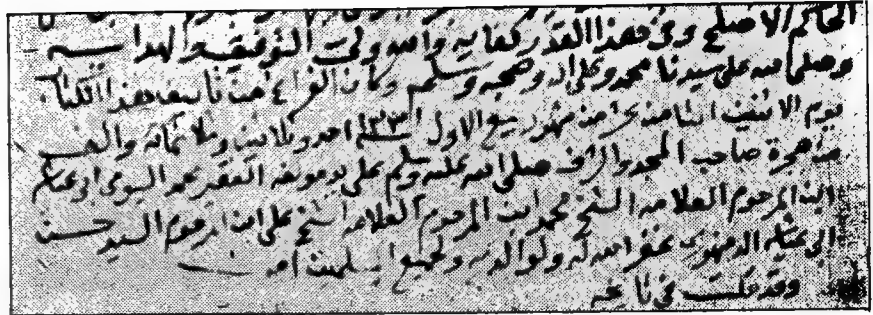 الحاكم الاصلح وفي هذا القدر كفايه والله ولي التوفيق والهدايه
وصلى الله على سيدنا محمد وعلى اله وصحبه وسلم وكان الفراغ من تاليف هذا الكتاب
يوم الاثنين الثامن عشر من شهر ربيع الاول ١٣٣١ احد وثلاثين وثلاثمائة والف
من هجرة صاحب المجد والشرف صلى الله عليه وسلم على يد مؤلفه الفقير محمد البيومي ابو عياشه
ابن المرحوم العلامه الشيخ محمد ابن المرحوم العلامه الشيخ علي ابن المرحوم السيد حسن
ابي عياشه الدمنهوري عفا الله له ولوالديه ولجميع المسلمين امين
وقد قلت في تاريخه